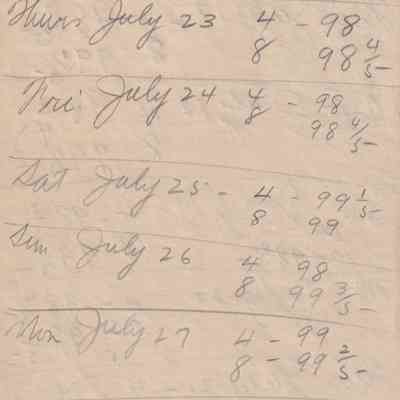 Thurs July 23 4 - 98
8 98 4/5
Fri. July 24 4 - 98
8 98 4/5
Sat July 25 - 4 - 99 1/5
8 99
Sun July 26 4 98
8 99 3/5
Mon July 27 4 - 99
8 - 99 2/5